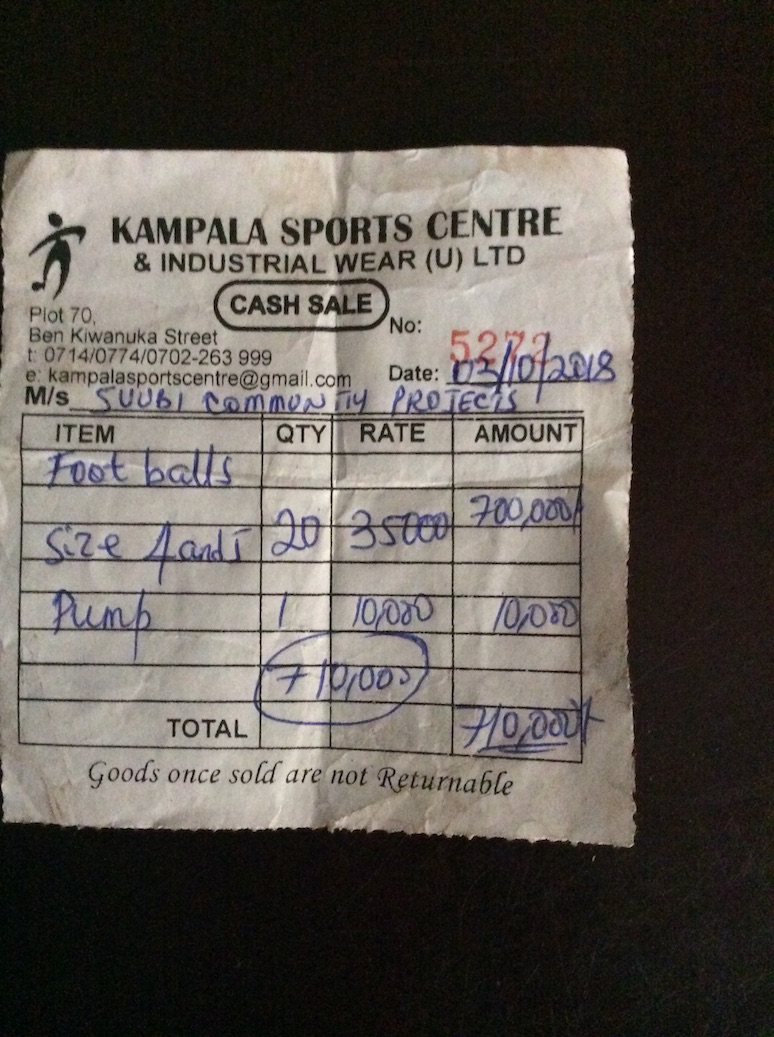 KAMPALA SPORTS CENTRE
& INDUSTRIAL WEAR (U) LTD
CASH SALE
Plot 70,
Ben Kiwanuka Street
t: 0714/0774/0702-263 999
e: kampalasportscentre@gmail.com
No: 5272
Date: 03/10/2018
M/s SUUBI COMMUNTIY PROJECTS
ITEM QTY RATE AMOUNT
Foot balls
Size 4 and 5 20 35000 700,000/
Pump 1 10,000 10,000
710,000
TOTAL 710,000/-
Goods once sold are not Returnable